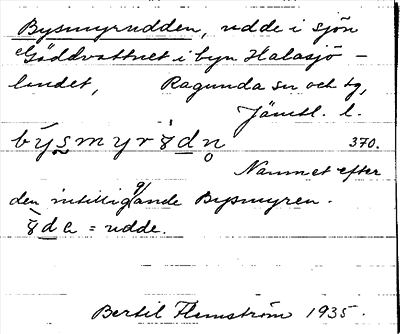 Bysmyrudden, udde i sjön
Gäddvattnet i byn Halasjö-
landet, Ragunda sn och tg,
Jämtl. l.
býsmyrèdn̥ 370.
Namnet efter
den intilliggande Bysmyren.
èda = udde.
Bertil Flemström 1935.